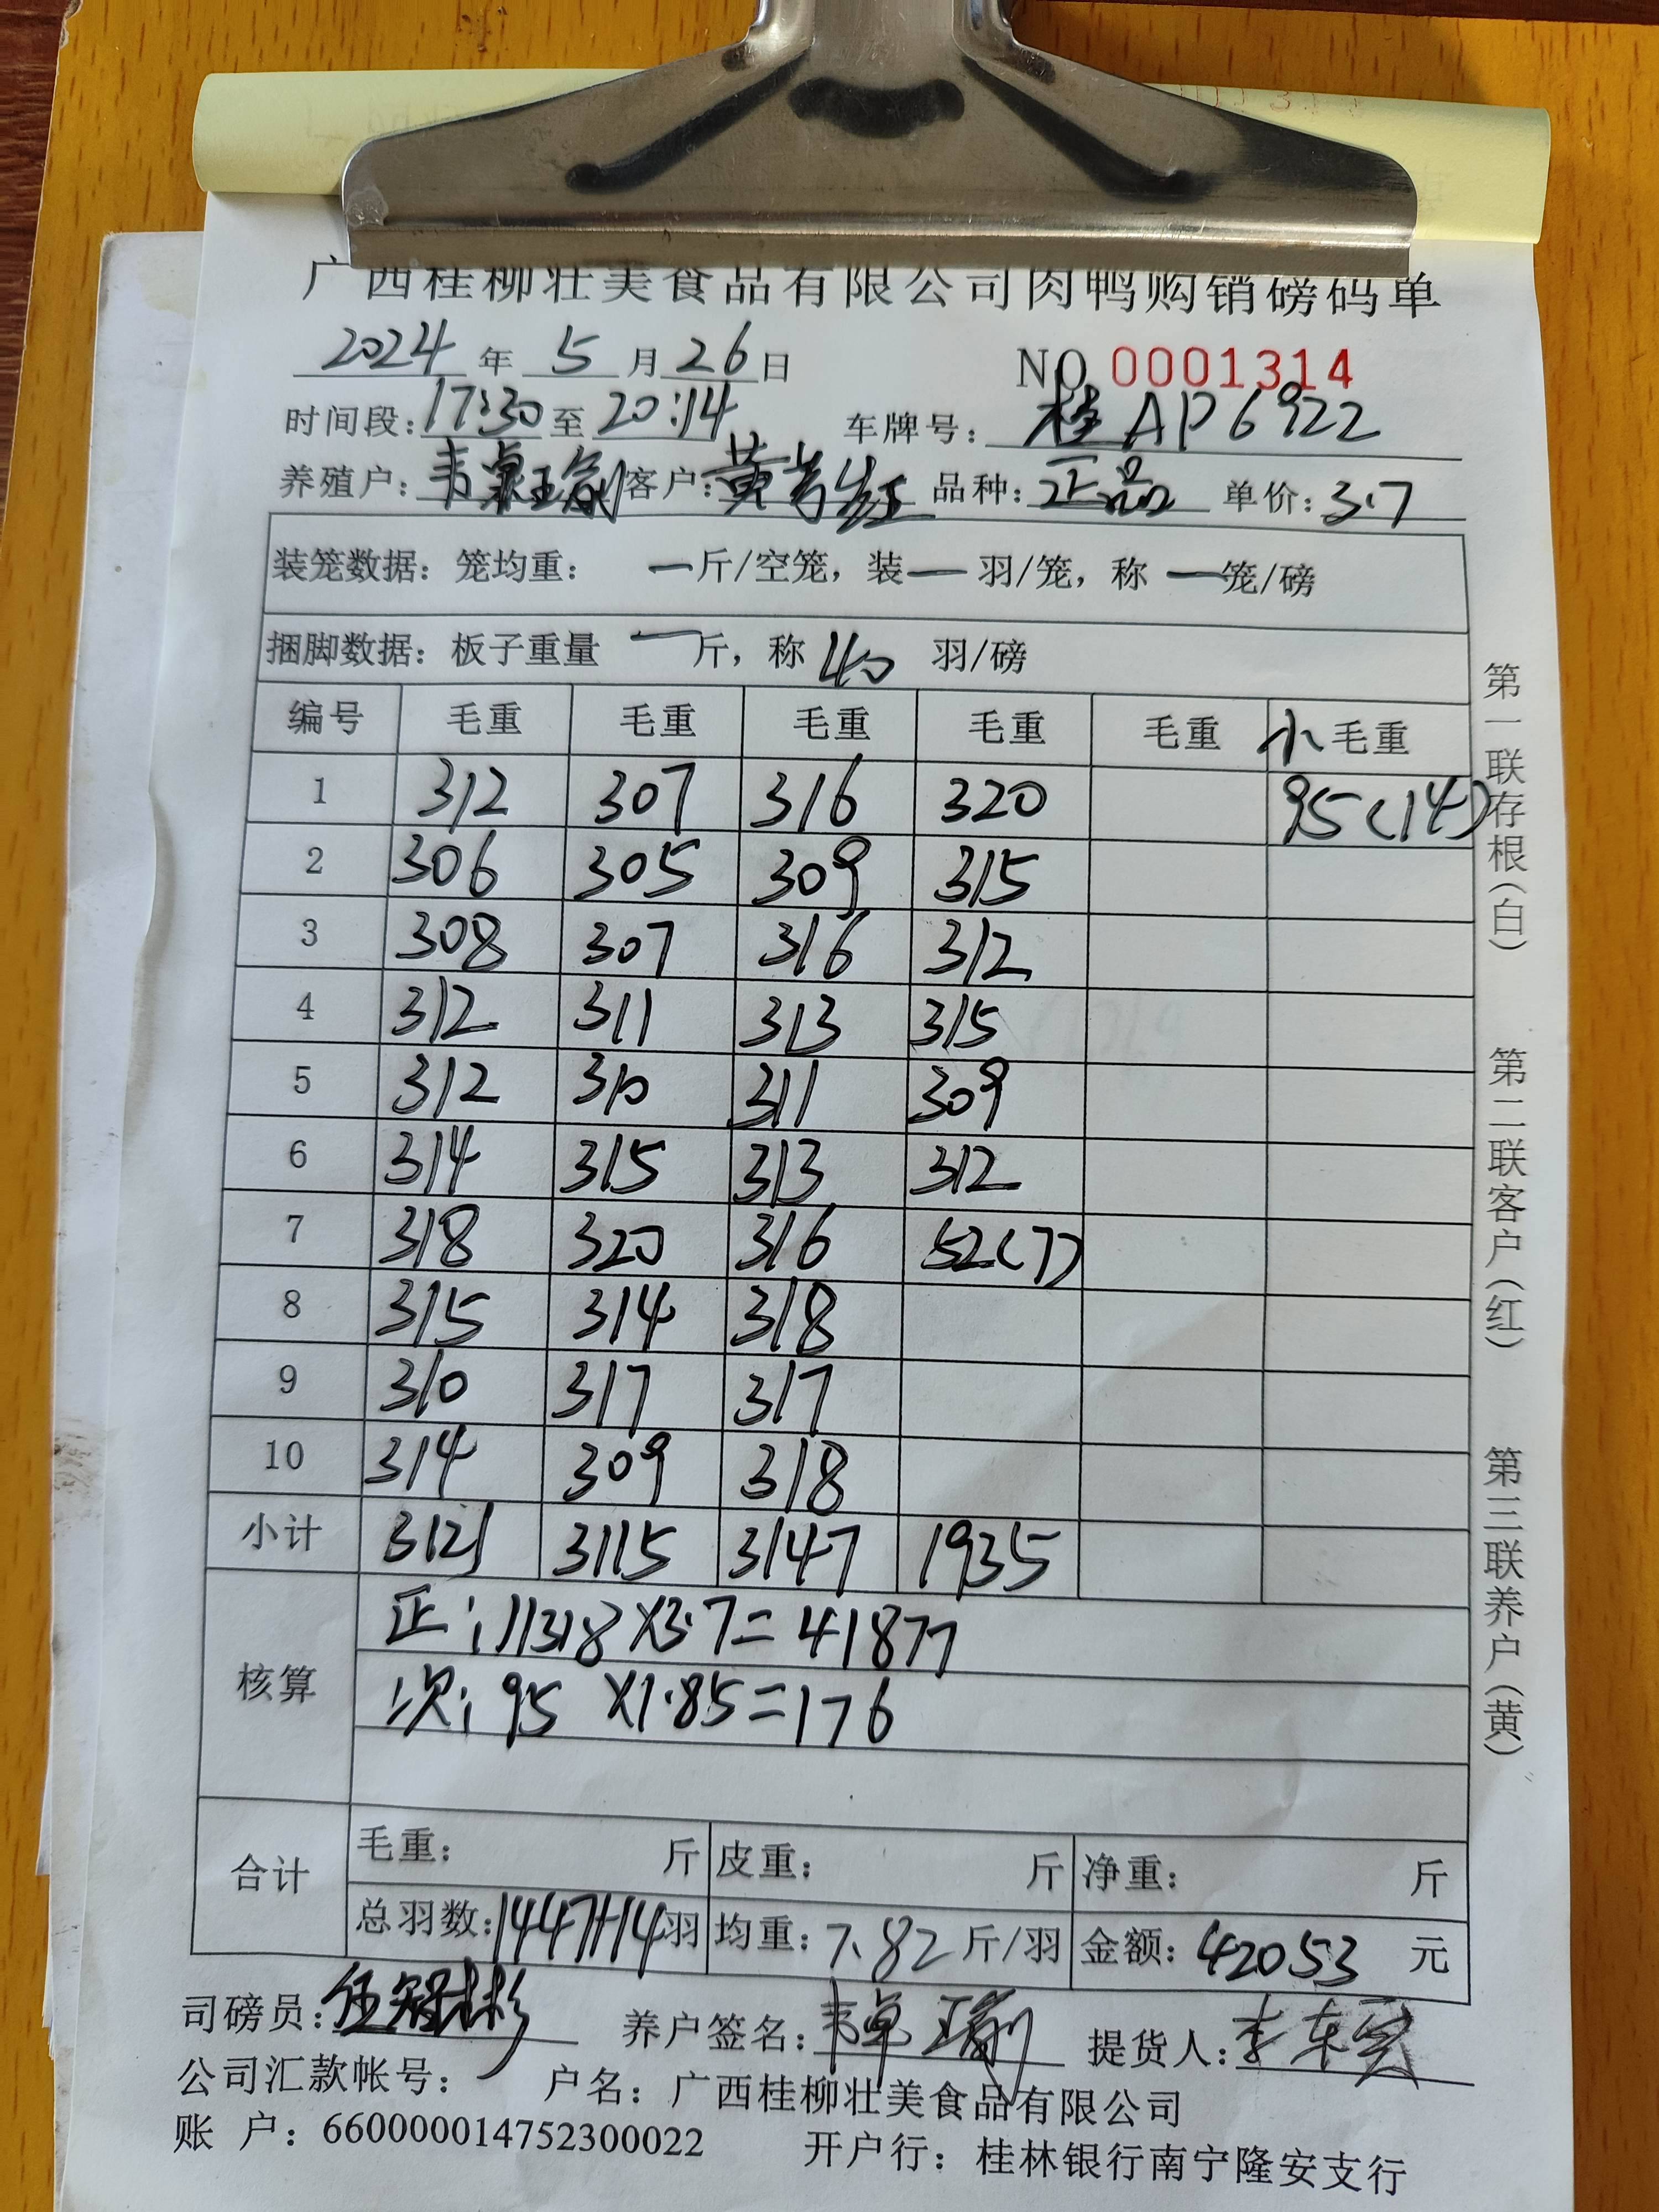 广西桂柳壮美食品有限公司肉鸭购销磅码单
2024 年 5 月 26 日 NO 0001314
时间段: 17:30 至 20:14 车牌号: 桂AP6922
养殖户: 韦卓瑜 客户: 黄 红 品种: 正品 单价: 3.7
装笼数据: 笼均重: 一斤/空笼, 装一羽/笼, 称一笼/磅
捆脚数据: 板子重量 一斤, 称 40 羽/磅
编号 毛重 毛重 毛重 毛重 毛重 小毛重
1 312 307 316 320 95(14)
2 306 305 309 315
3 308 307 316 312
4 312 311 313 315
5 312 310 311 309
6 314 315 313 312
7 318 320 316 52(7)
8 315 314 318
9 310 317 317
10 314 309 318
小计 3121 3115 3147 1935
核算
正:11318×3.7=41877
次:95 ×1.85=176
合计
毛重: 斤 皮重: 斤 净重: 斤
总羽数:1447+14羽 均重:7.82斤/羽 金额:42053 元
司磅员: 伍 彬 养户签名: 韦卓瑜 提货人: 李东
公司汇款帐号: 户名: 广西桂柳壮美食品有限公司
账 户: 660000014752300022 开户行: 桂林银行南宁隆安支行
第一联存根(白)
第二联客户(红)
第三联养户(黄)